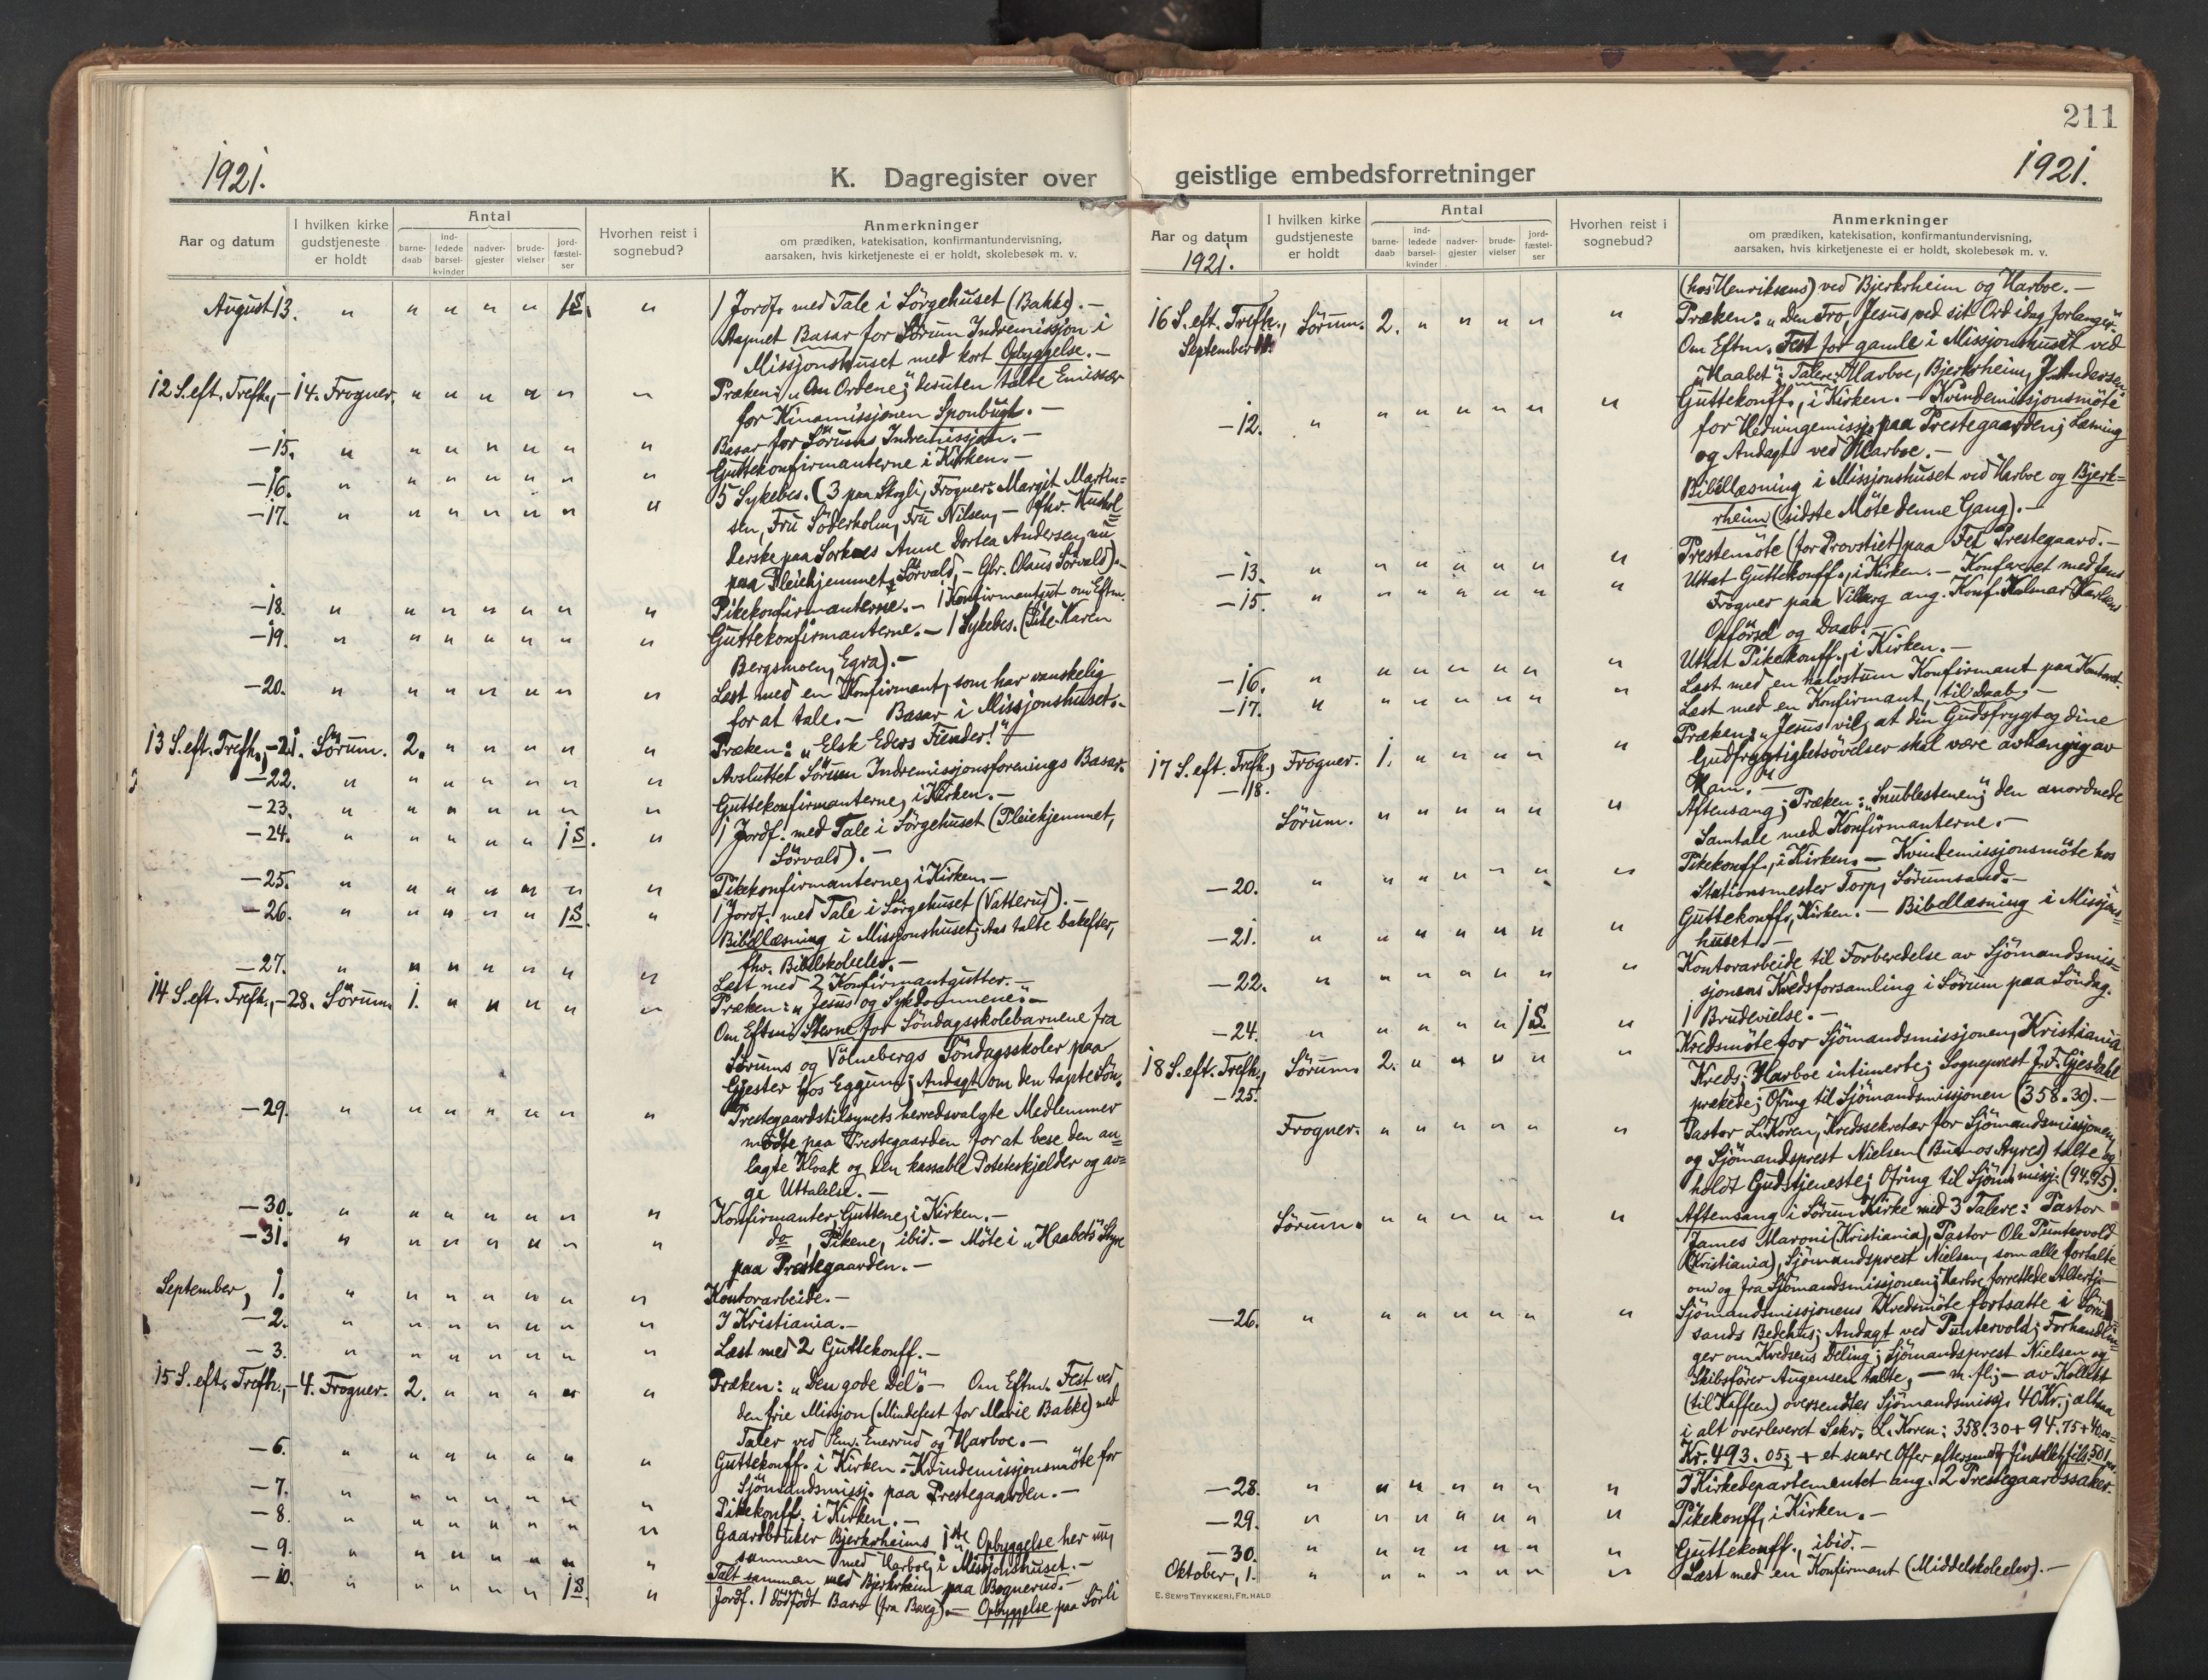 211
1921.
K. Dagregister over
geistlige embedsforretninger
1921.
Aar og datum
I hvilken kirke gudstjeneste er holdt
Antal
barne-daab
ind-ledede barsel-kvinder
nadver-gjester
brude-vielser
jord-fæstel-ser
Hvorhen reist i sognebud?
Anmerkninger
om prædiken, katekisation, konfirmantundervisning,
aarsaken, hvis kirketjeneste ei er holdt, skolebesøk m. v.
August 13. " " " " " 1S. " 1 Jordf. med Tale i Sörgehuset (Bakke). —
Aapnet Basar for Sörum Indremissjon i
Missjonshuset med kort Opbyggelse. —
12 S. eft. Trefh., — 14. Frogner. " " " " " " Præken: „Om Ordene"; desuten talte Emissær
for Kinamissjonen Sponbugh. —
— 15. " " " " " " " Basar for Sörums Indremissjon. —
— 16. " " " " " " " Guttekonfirmanterne i Kirken. —
— 17. " " " " " " " 5 Sykebes. (3 paa Skogli, Frogner: Margit Martin=
sen, Fru Söderholm, Fru Nilsen, — fhv. Hushol=
derske paa Sorknes Anne Dortea Andersen, nu
paa Pleiehjemmet, Sörvald, — Gbr. Olaus Sörvald). —
— 18. " " " " " " " Pikekonfirmanterne. — 1 Konfirmantgut om Eftm.
— 19. " " " " " " " Guttekonfirmanterne. — 1 Sykebes. (Pike Karen
Bergsmoen, Egra). —
— 20. " " " " " " " Læst med en Konfirmant, som har vanskelig
for at tale. — Basar i Missjonshuset. —
13 S. eft. Trefh., — 21. Sörum. 2. " " " " " Præken: „Elsk Eders Fiender!" —
— 22. " " " " " " " Avsluttet Sörum Indremissjonsforenings Basar.
— 23. " " " " " " " Guttekonfirmanterne, i Kirken. —
— 24. " " " " " 1S. " 1 Jordf. med Tale i Sörgehuset (Pleiehjemmet,
Sörvald). —
— 25. " " " " " " " Pikekonfirmanterne, i Kirken. —
— 26. " " " " " 1S. " 1 Jordf. med Tale i Sörgehuset (Vatterud). —
Bibellæsning i Missjonshuset; Aas talte bakefter,
fhv. Bibelskoleelev. —
— 27. " " " " " " " Læst med 2 Konfirmantgutter. —
14 S. eft. Trefh., — 28. Sörum. 1. " " " " " Præken: „Jesus og Sykdommene". —
Om Eftm. Stevne for Söndagsskolebarnene fra
Sörums og Völnebergs Söndagsskoler paa
Gjester hos Eggum; Andagt om den tapte Sön.
— 29. " " " " " " " Prestegaardstilsynets herredsvalgte Medlemmer
mödte paa Prestegaarden for at bese den an=
lagte Kloak og den kassable Poteteskjelder og av=
gi Uttalelse. —
— 30. " " " " " " " Konfirmanter, Guttene, i Kirken. —
— 31. " " " " " " " do , Pikene, ibid. — Möte i „Haabets" Styre
paa Prestegaarden. —
September, 1. " " " " " " " Kontorarbeide. —
— 2. " " " " " " " I Kristiania. —
— 3. " " " " " " " Læst med 2 Guttekonff. —
15 S. eft. Trefh., — 4. Frogner. 2. " " " " " Præken: „Den gode Del". — Om Eftm. Fest ved
den frie Missjon (Mindefest for Marie Bakke) med
Taler ved Em. Enerrud og Harboe. —
— 6. " " " " " " " Guttekonff. i Kirken. — Kvindemissjonsmöte for
Sjömandsmissj. paa Prestegaarden. —
— 7. " " " " " " " Pikekonff. i Kirken. —
— 8. " " " " " " " Gaardbruker Bjerkrheims 1ste Opbyggelse her nu,
sammen med Harboe, i Missjonshuset. —
— 9. " " " " " " " Talt sammen med Bjerkrheim paa Bognerud. —
— 10. " " " " " 1S. " Jordf. 1 dödfödt Barn (fra Berg). — Opbyggelse paa Sörli
Aar og datum
1921.
I hvilken kirke gudstjeneste er holdt
Antal
barne-daab
ind-ledede barsel-kvinder
nadver-gjester
brude-vielser
jord-fæstel-ser
Hvorhen reist i sognebud?
Anmerkninger
om prædiken, katekisation, konfirmantundervisning,
aarsaken, hvis kirketjeneste ei er holdt, skolebesøk m. v.
(hos Henriksens) ved Bjerkrheim og Harboe. —
16 S. eft. Trefh., Sörum. 2. " " " " " Præken: „Den Tro, Jesus ved sit Ord idag forlanger."
September 11. Om Eftm. Fest for gamle i Missjonshuset ved
„Haabet"; Talere: Harboe, Bjerkrheim, J. Andersen.
— 12. " " " " " " " Guttekonff., i Kirken. — Kvindemissjonsmöte
for Hedningemissj. paa Prestegaarden; Læsning
og Andagt ved Harboe. —
Bibellæsning i Missjonshuset ved Harboe og Bjerk=
rheim (sidste Möte denne Gang). —
— 13. " " " " " " " Prestemöte (for Provstiet) paa Fet Prestegaard. —
— 15. " " " " " " " Uttat Guttekonff., i Kirken. — Konfereret med Jens
Frogner paa Viberg ang. Konf. Halmar Karlsens
Opförsel og Daab. —
— 16. " " " " " " " Uttat Pikekonff., i Kirken. —
Læst med en halvstum Konfirmant paa Kontoret.
— 17. " " " " " " " Læst med en Konfirmant, til Daab. —
17 S. eft. Trefh., Frogner. 1. " " " " " Præken: „Jesus vil, at din Gudsfrygt og dine
— 18. Gudfrygtighetsövelser skal være avhængig av
Ham." —
Sörum. " " " " " " Aftensang; Præken: „Snublestenen"; den anordnede
Samtale med Konfirmanterne. —
— 20. " " " " " " " Pikekonff., i Kirken. — Kvindemissjonsmöte hos
Stationsmester Torp, Sörumsand. —
— 21. " " " " " " " Guttekonff., Kirken. — Bibellæsning i Missjons=
huset. —
— 22. " " " " " " " Kontorarbeide til Forberedelse av Sjömandsmis=
sjonens Kredsforsamling i Sörum paa Söndag.
— 24. " " " " " 1S. " 1 Brudevielse. —
18 S. eft. Trefh., Sörum. 2. " " " " " Kredsmöte for Sjömandsmissjonen, Kristiania
— 25. Kreds; Harboe intimerte; Sogneprest J. F. Gjesdahl
prækede; Ofring til Sjömandsmissjonen (358.30). —
Frogner. " " " " " " Pastor L. Koren, Kredssekretær for Sjömandsmissjonen,
og Sjömandsprest Nielsen (Buenos Ayres) talte og
holdt Gudstjeneste; Ofring til Sjöm.s missj. (94.75).
Sörum. " " " " " " Aftensang i Sörum Kirke med 3 Talere: Pastor
James Maroni (Kristiania), Pastor Ole Puntervold
(Kristiania), Sjömandsprest Nielsen, som alle fortalte
om og fra Sjömandsmissjonen; Harboe forrettede Altertj. —
— 26. " " " " " " " Sjömandsmissjonens Kredsmöte fortsatte i Sörum=
sands Bedehus; Andagt ved Puntervold; Forhandlin=
ger om Kredsens Deling; Sjömandsprest Nielsen og
Skibsförer Augensen talte, — m. fl.; — av Kollekt
(til Kaffeen) oversendtes Sjömandsmissj. 40 Kr.; altsaa
i alt overleveret Sekr. L. Koren: 358.30 + 94.75 + 40.00 =
Kr. 493.05; + et senere Offer
— 28. " " " " " " " I Kirkedepartementet ang. 2 Prestegaardssaker.
— 29. " " " " " " " Pikekonff, i Kirken. —
— 30. " " " " " " " Guttekonff., ibid. —
Oktober, 1. " " " " " " " Læst med en Konfirmant (Middelskoleelev). —
E. SEM'S TRYKKERI, FR. HALD